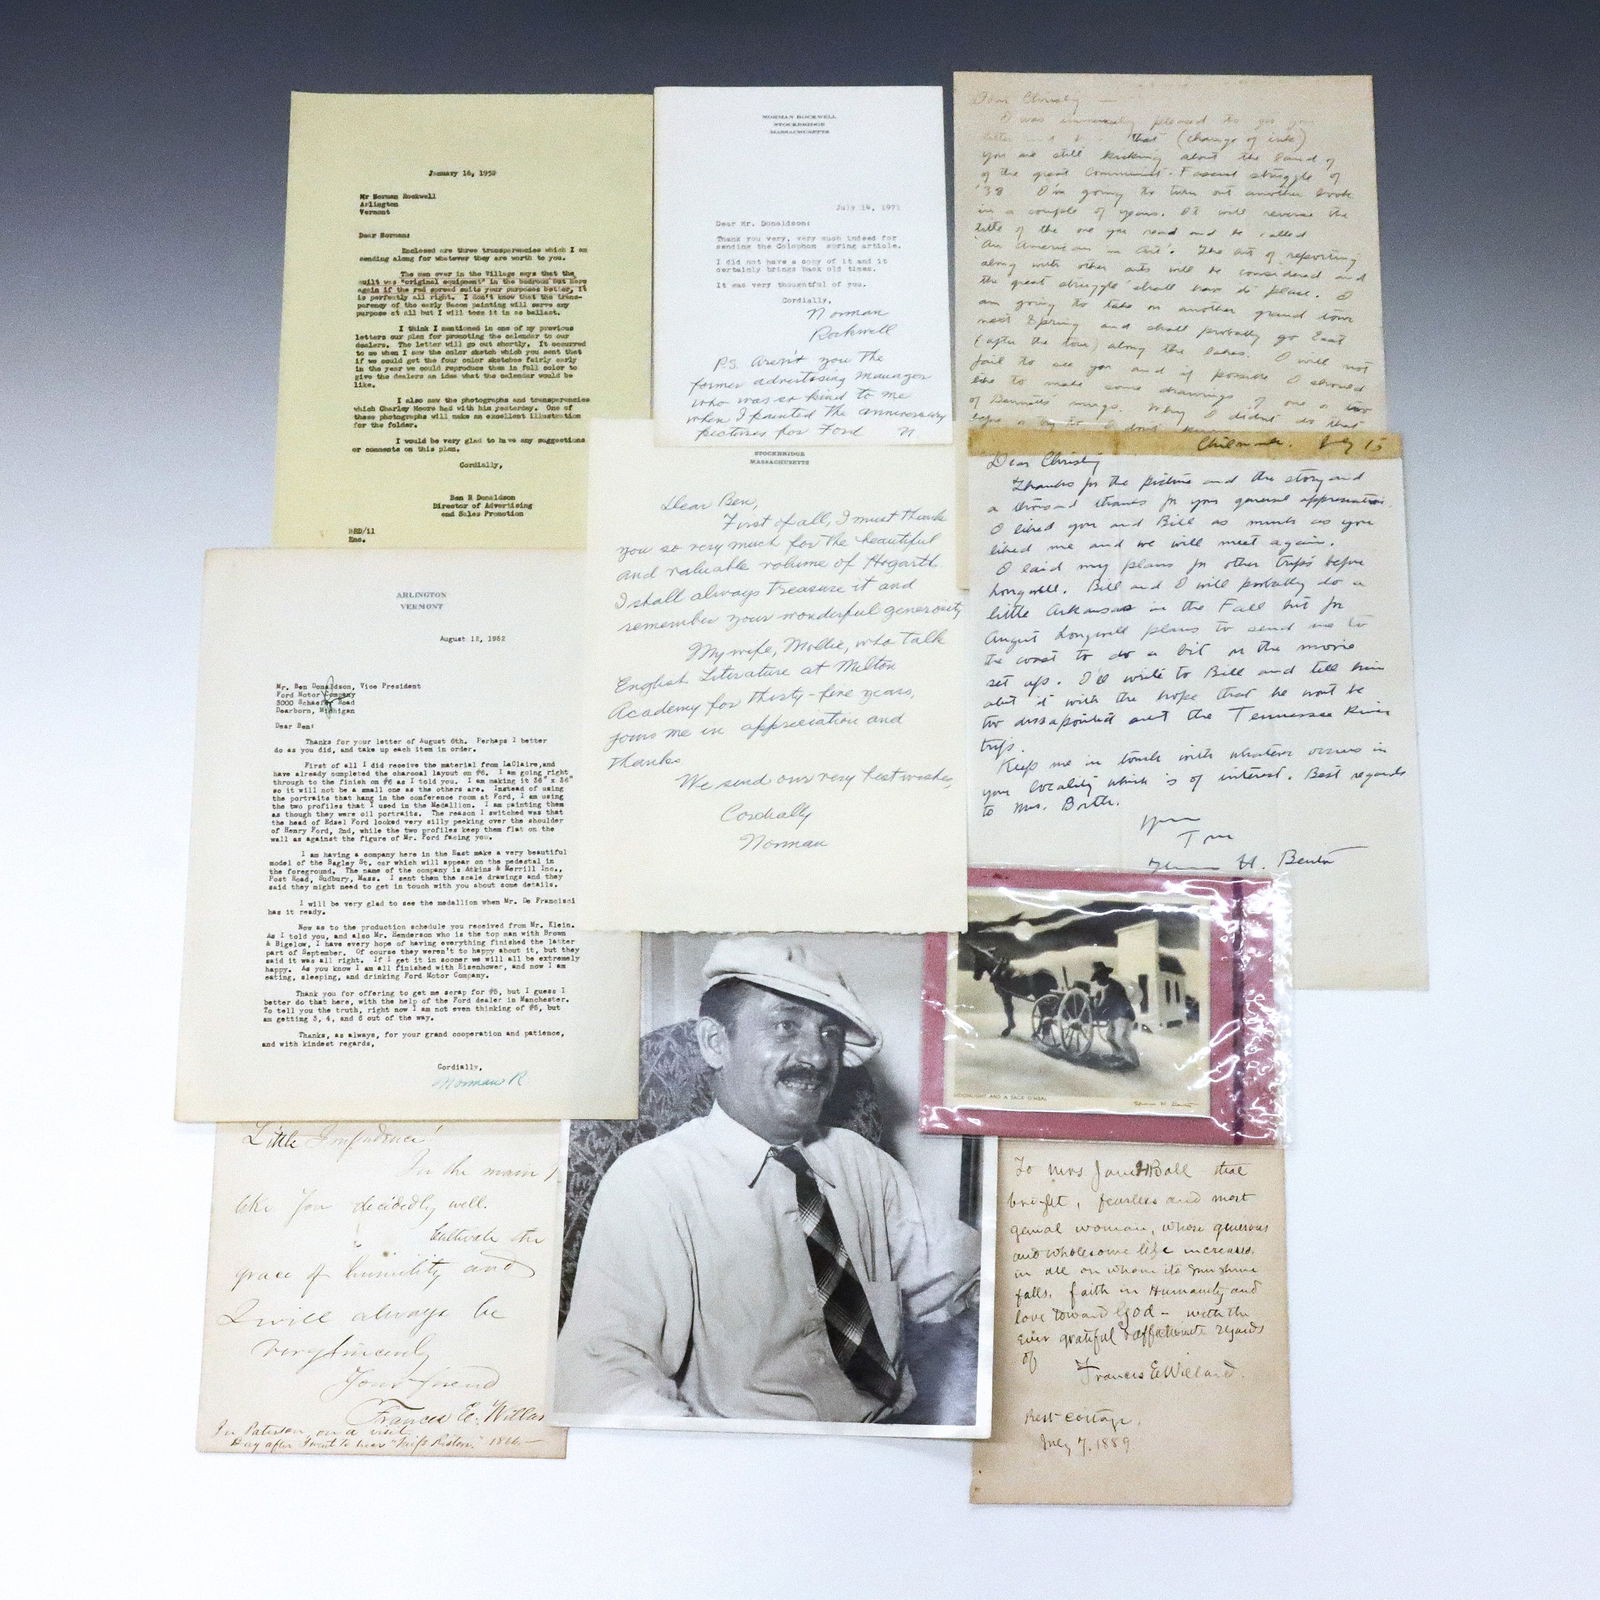 January 16, 1952
Mr Norman Rockwell
Arlington
Vermont
Dear Norman:
Enclosed are three transparencies which I am
sending along for whatever they are worth to you.
The man over in the Village says that the
quilt was "original equipment" in the bedroom but here
again if the red spread suits your purposes better, it
is perfectly all right. I don't know that the trans-
parency of the early Bacon painting will serve any
purpose at all but I will toss it in as ballast.
I think I mentioned in one of my previous
letters our plan for promoting the calendar to our
dealers. The letter will go out shortly. It occurred
to me when I saw the color sketch which you sent that
if we could get the four color sketches fairly early
in the year we could reproduce them in full color to
give the dealers an idea what the calendar would be
like.
I also saw the photographs and transparencies
which Charley Moore had with him yesterday. One of
these photographs will make an excellent illustration
for the folder.
I would be very glad to have any suggestions
or comments on this plan.
Cordially,
Ben R Donaldson
Director of Advertising
and Sales Promotion
BRD/11
Enc.
NORMAN ROCKWELL
STOCKBRIDGE
MASSACHUSETTS
July 14, 1971
Dear Mr. Donaldson:
Thank you very, very much indeed for
sending the Colophon spring article.
I did not have a copy of it and it
certainly brings back old times.
It was very thoughtful of you.
Cordially,
Norman
Rockwell
P.S. Aren't you the
former advertising manager
who was so kind to me
when I painted the anniversary
pictures for Ford N
Dear Christy —
I was immensely pleased to get your
letter that (change of ink)
you are still kicking about the land of
of the great Communist-Fascist struggle of
'38 I'm going to turn out another book
in a couple of years. It will reverse the
title of the one you read and be called
'An American in Art'. The arts of reporting
along with other arts will be considered and
the great struggle shall have its place. I
am going to take on another grand tour
next Spring and shall probably go East
(after the tour) along the lakes. I will not
fail to see you and if possible I should
like to make some drawings of one or two
of Bennett's
Why I didn't do that
STOCKBRIDGE
MASSACHUSETTS
Dear Ben,
First of all, I must thank
you so very much for the beautiful
and valuable volume of Hogarth
I shall always treasure it and
remember your wonderful generosity
My wife, Mollie, who talk
English Literature at Milton
Academy for thirty-five years,
joins me in appreciation and
thanks
We send our very best wishes,
Cordially
Norman
Chilmark. July 15
Dear Christy
Thanks for the picture and the story and
a thousand thanks for your general appreciation.
I liked you and Bill as much as you
liked me and we will meet again.
I laid my plans for other trips before
Longwell. Bill and I will probably do a
little Arkansas in the Fall but for
August Longwell plans to send me to
the coast to do a bit on the movie
set ups. I'll write to Bill and tell him
about it with the hope that he wont be
too dissapointed about the Tennessee River
trip.
Keep me in touch with whatever occurs in
your locality which is of interest. Best regards
to Mrs.
Yours
Tom
Thomas H. Benton
ARLINGTON
VERMONT
August 12, 1952
Mr. Ben Donaldson, Vice President
Ford Motor Company
3000 Schaefer Road
Dearborn, Michigan
Dear Ben:
Thanks for your letter of August 6th. Perhaps I better
do as you did, and take up each item in order.
First of all I did receive the material from LaClaire, and
have already completed the charcoal layout on #6. I am going right
through to the finish on #6 as I told you. I am making it 36" x 36"
so it will not be a small one as the others are. Instead of using
the portraits that hang in the conference room at Ford, I am using
the two profiles that I used in the Medallion. I am painting them
as though they were oil portraits. The reason I switched was that
the head of Edsel Ford looked very silly peeking over the shoulder
of Henry Ford, 2nd, while the two profiles keep them flat on the
wall as against the figure of Mr. Ford facing you.
I am having a company here in the East make a very beautiful
model of the Bagley St. car which will appear on the pedestal in
the foreground. The name of the company is Atkins & Merrill Inc.,
Post Road, Sudbury, Mass. I sent them the scale drawings and they
said they might need to get in touch with you about some details.
I will be very glad to see the medallion when Mr. De Francisci
has it ready.
Now as to the production schedule you received from Mr. Klein.
As I told you, and also Mr. Henderson who is the top man with Brown
& Bigelow, I have every hope of having everything finished the latter
part of September. Of course they weren't to happy about it, but they
said it was all right. If I get it in sooner we will all be extremely
happy. As you know I am all finished with Eisenhower, and now I am
eating, sleeping, and drinking Ford Motor Company.
Thank you for offering to get me scrap for #5, but I guess I
better do that here, with the help of the Ford dealer in Manchester.
To tell you the truth, right now I am not even thinking of #5, but
am getting 3, 4, and 6 out of the way.
Thanks, as always, for your grand cooperation and patience,
and with kindest regards,
Cordially,
Norman R
MOONLIGHT AND A SACK O'MEAL
Little Impudence'
In the main I
like You decidedly well.
Cultivate the
grace of humility and
I will always be
Very Sincerely
Your friend
Frances E. Willar
In Paterson on a visit
Day after I went to hear "Miss Ristori." 1866—
To Mrs Jane H Ball that
bright, fearless and most
genial woman, whose generous
and wholesome life increases
in all on whom its sunshine
falls, faith in Humanity and
love toward God — with the
ever grateful & affectionate regards
of Frances E Willard.
Rest Cottage,
July 7, 1889